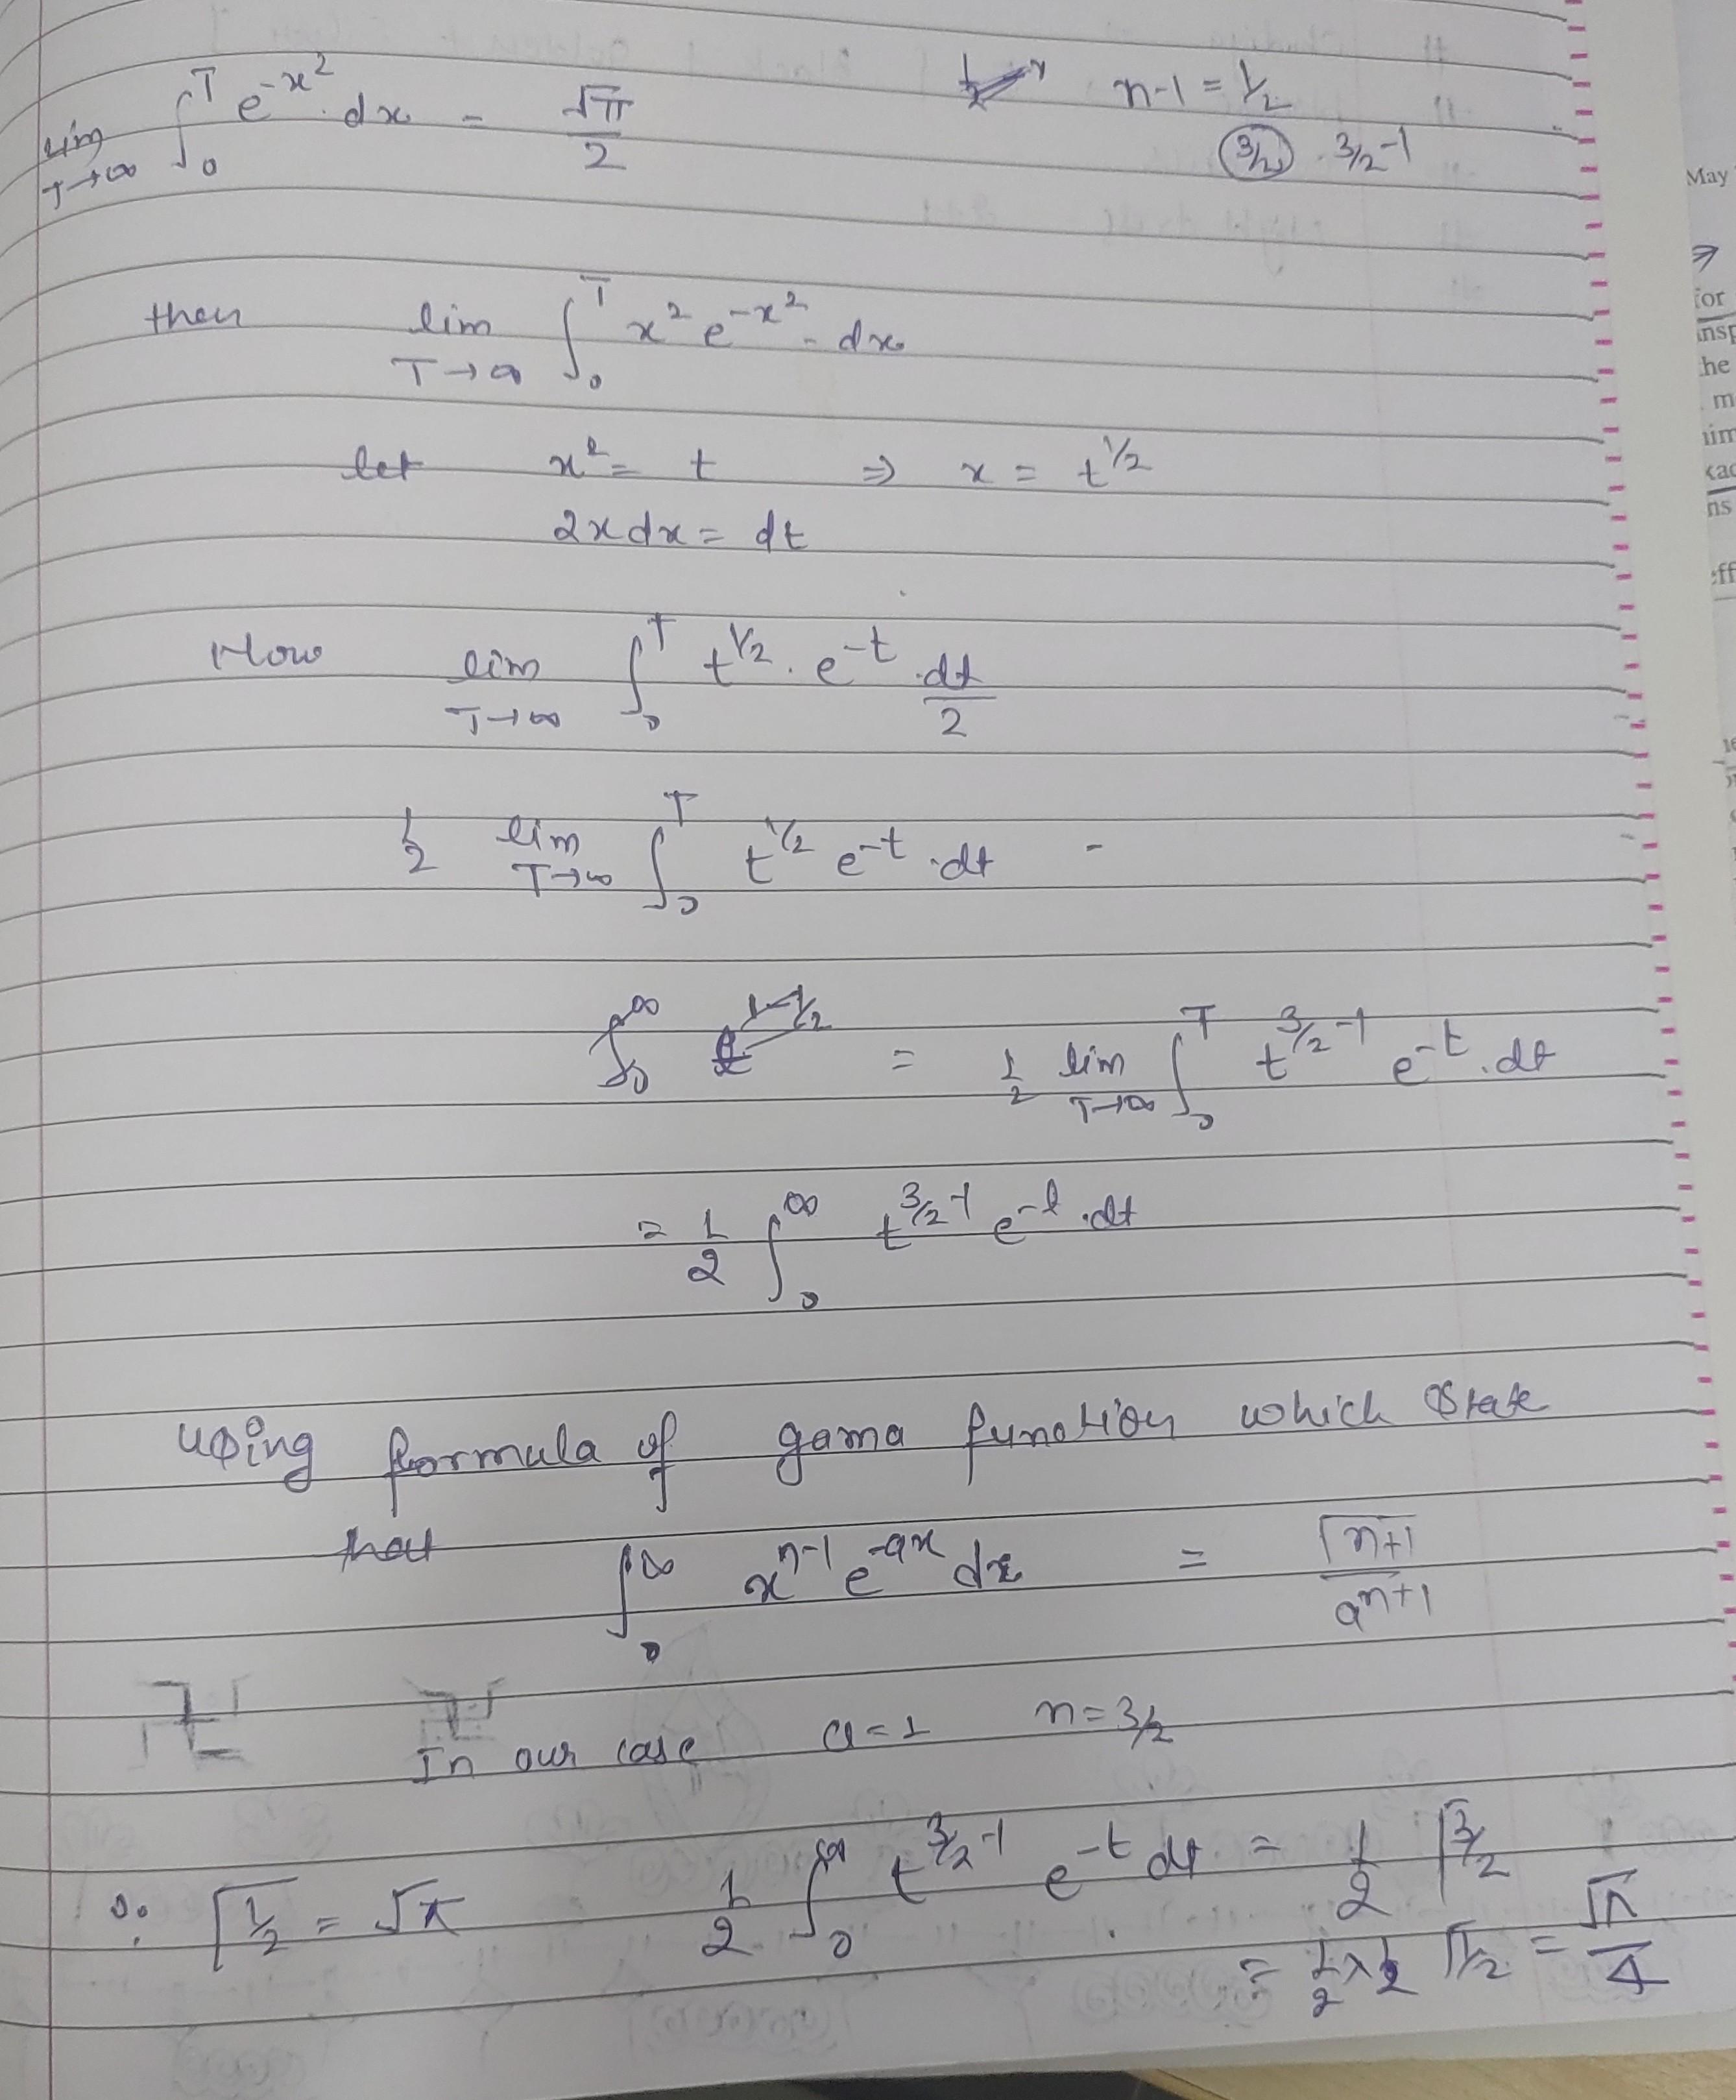 lim T→∞ ∫₀ᵀ e^{-x²}.dx = √π/2
n-1 = 1/2
3/2 . 3/2-1
then lim T→∞ ∫₀ᵀ x² e^{-x²}.dx
let x² = t ⇒ x = t^{1/2}
2xdx = dt
Now lim T→∞ ∫₀ᵀ t^{1/2}.e^{-t}.dt/2
1/2 lim T→∞ ∫₀ᵀ t^{1/2} e^{-t}.dt -
∫₀^∞ = 1/2 lim T→∞ ∫₀ᵀ t^{3/2-1} e^{-t}.dt
= 1/2 ∫₀^∞ t^{3/2-1} e^{-t}.dt
using formula of gama function which state
that ∫₀^∞ x^{n-1} e^{-ax} dx = Γn+1/a^{n+1}
In our case a=1 n=3/2
∵ Γ1/2 = √π 1/2 ∫₀^∞ t^{3/2-1} e^{-t} dt = 1/2 Γ3/2
= 1/2 × 1/2 Γ1/2 = √π/4
May
for
insp
he
m
ns
eff